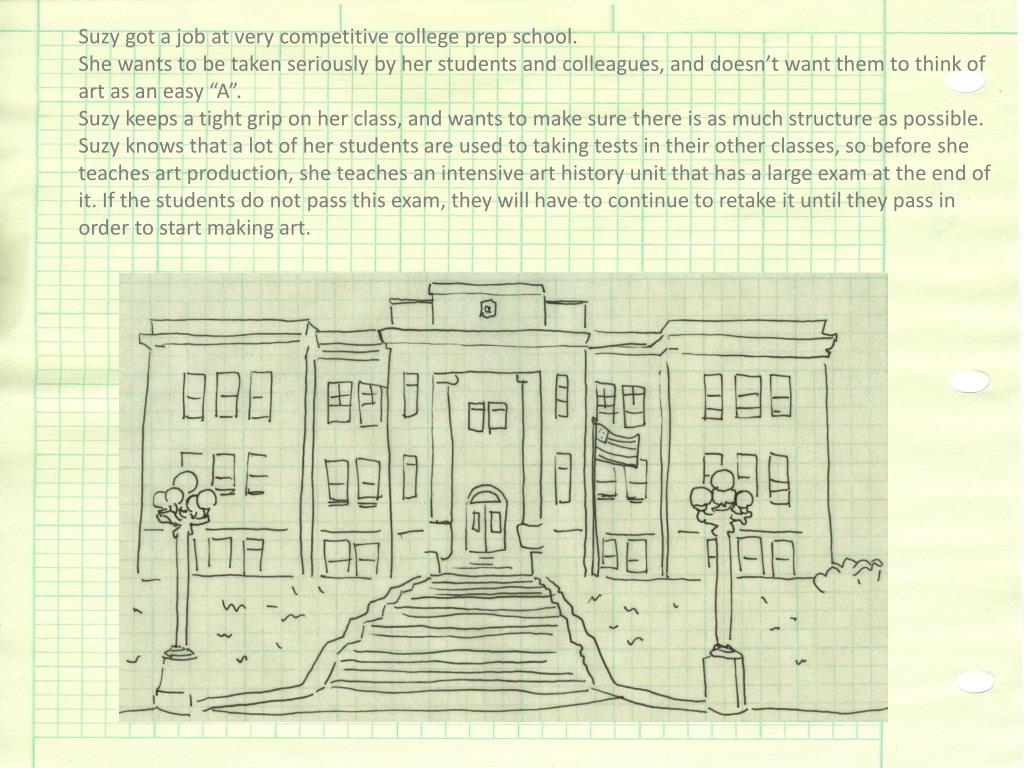 Suzy got a job at very competitive college prep school.
She wants to be taken seriously by her students and colleagues, and doesn’t want them to think of
art as an easy “A”.
Suzy keeps a tight grip on her class, and wants to make sure there is as much structure as possible.
Suzy knows that a lot of her students are used to taking tests in their other classes, so before she
teaches art production, she teaches an intensive art history unit that has a large exam at the end of
it. If the students do not pass this exam, they will have to continue to retake it until they pass in
order to start making art.